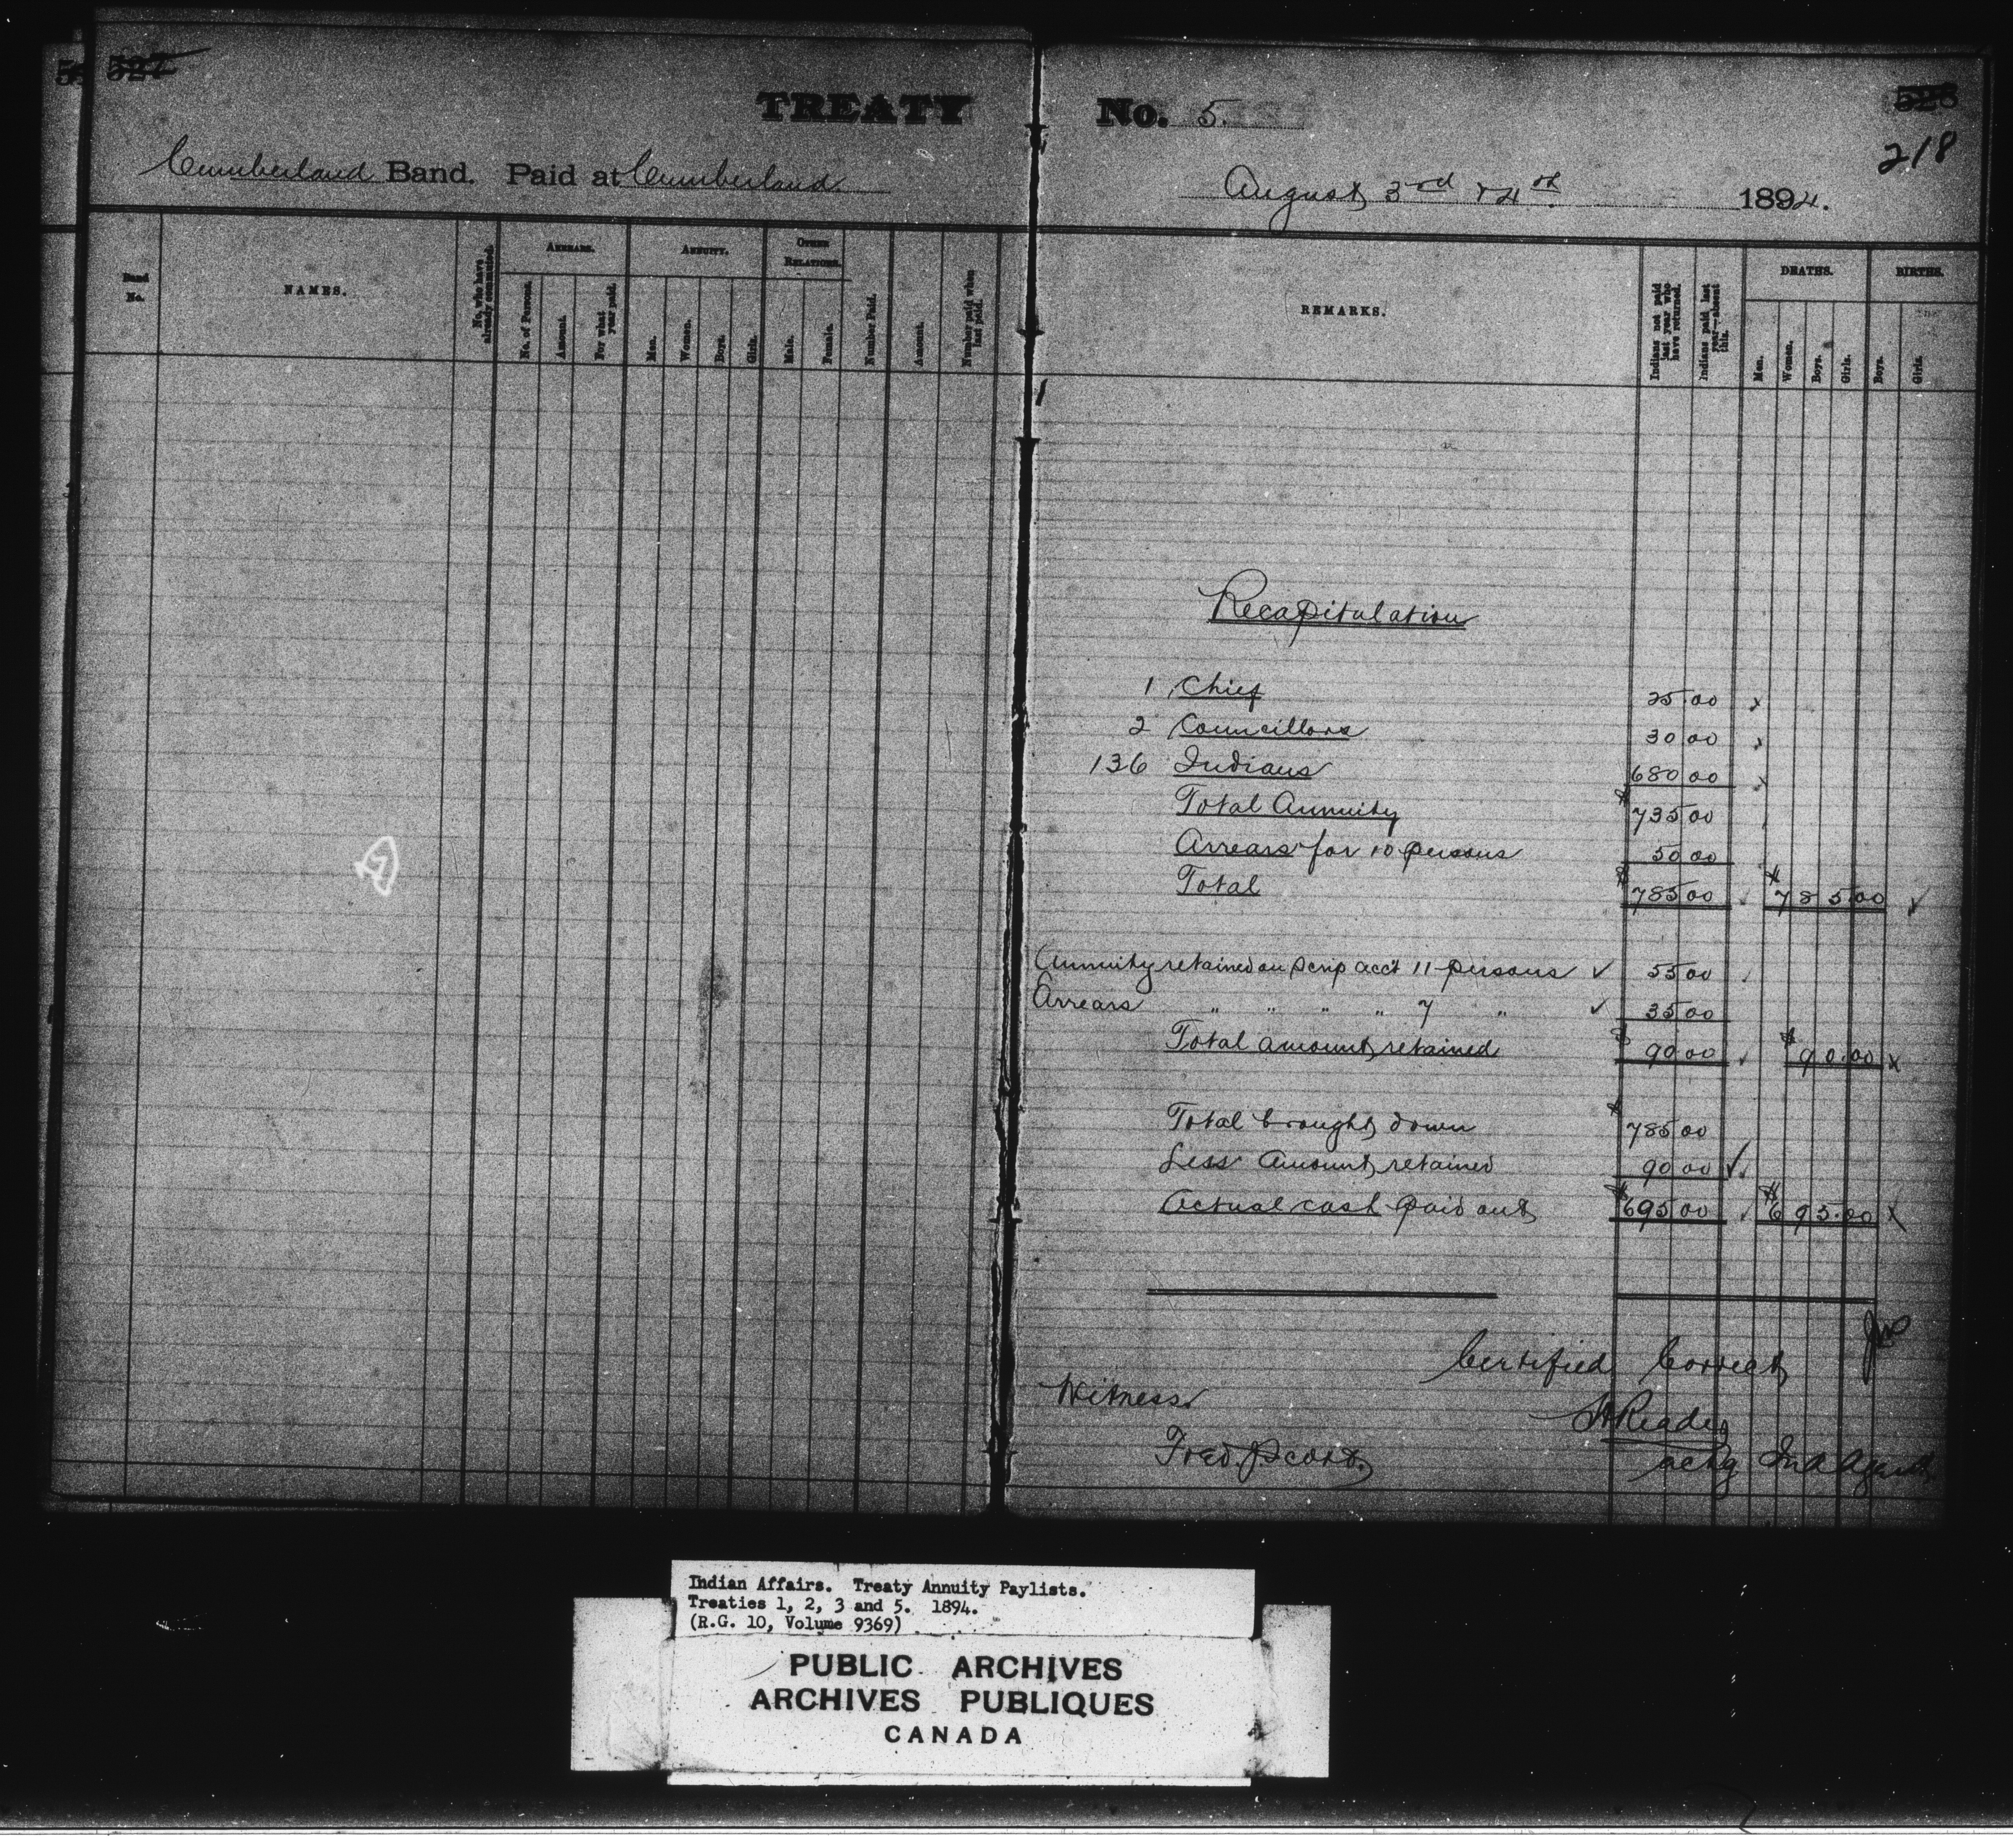 527
528
218
TREATY No. 5.
Cumberland Band. Paid at Cumberland. August 3rd & 4th. 1894.
Band No.
NAMES.
No. who have already commuted.
ARREARS.
No. of Persons.
Amount.
For what year paid.
ANNUITY.
Men.
Women.
Boys.
Girls.
OTHER RELATIONS.
Male.
Female.
Number Paid.
Amount.
Number paid when last paid.
REMARKS.
Indians not paid last year who have returned.
Indians paid last year—absent this.
DEATHS.
Men.
Women.
Boys.
Girls.
BIRTHS.
Boys.
Girls.
Recapitulation
1 Chief 25.00
2 Councillors 30 00
136 Indians 680 00
Total Annuity $735 00
Arrears for 10 persons 50 00
Total $785 00 $785.00
Annuity retained on Scrip acc't 11 persons 55 00
Arrears " " " " 7 " 35 00
Total amount retained $90 00 $90.00
Total brought down $785 00
Less Amount retained 90 00
Actual cash paid out $695 00 $695.00
Certified Correct
Witness.
Reader
Fred. Scott.
actg Ind Agent
Indian Affairs. Treaty Annuity Paylists.
Treaties 1, 2, 3 and 5. 1894.
(R.G. 10, Volume 9369)
PUBLIC ARCHIVES
ARCHIVES PUBLIQUES
CANADA